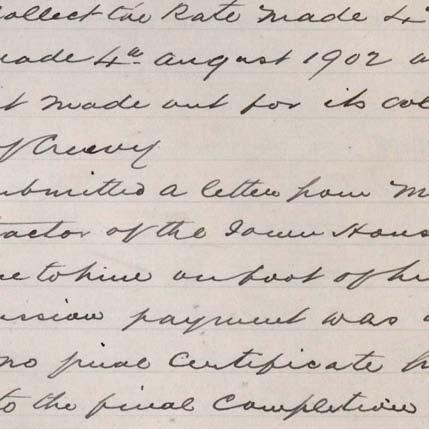 ollect the Rate Made 4
made 4th August 1902 a
t made out for its col
of Creevy
ubmitted a letter from M
ractor of the Town Hous
ue to him on foot of hi
ussion payment was
no final Certificate h
to the final Completion